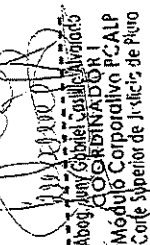 Abog. Juny Gabriel Castillo Alvarado
COORDINADOR I
Módulo Corporativo PCALP
Corte Superior de Justicia de Piura